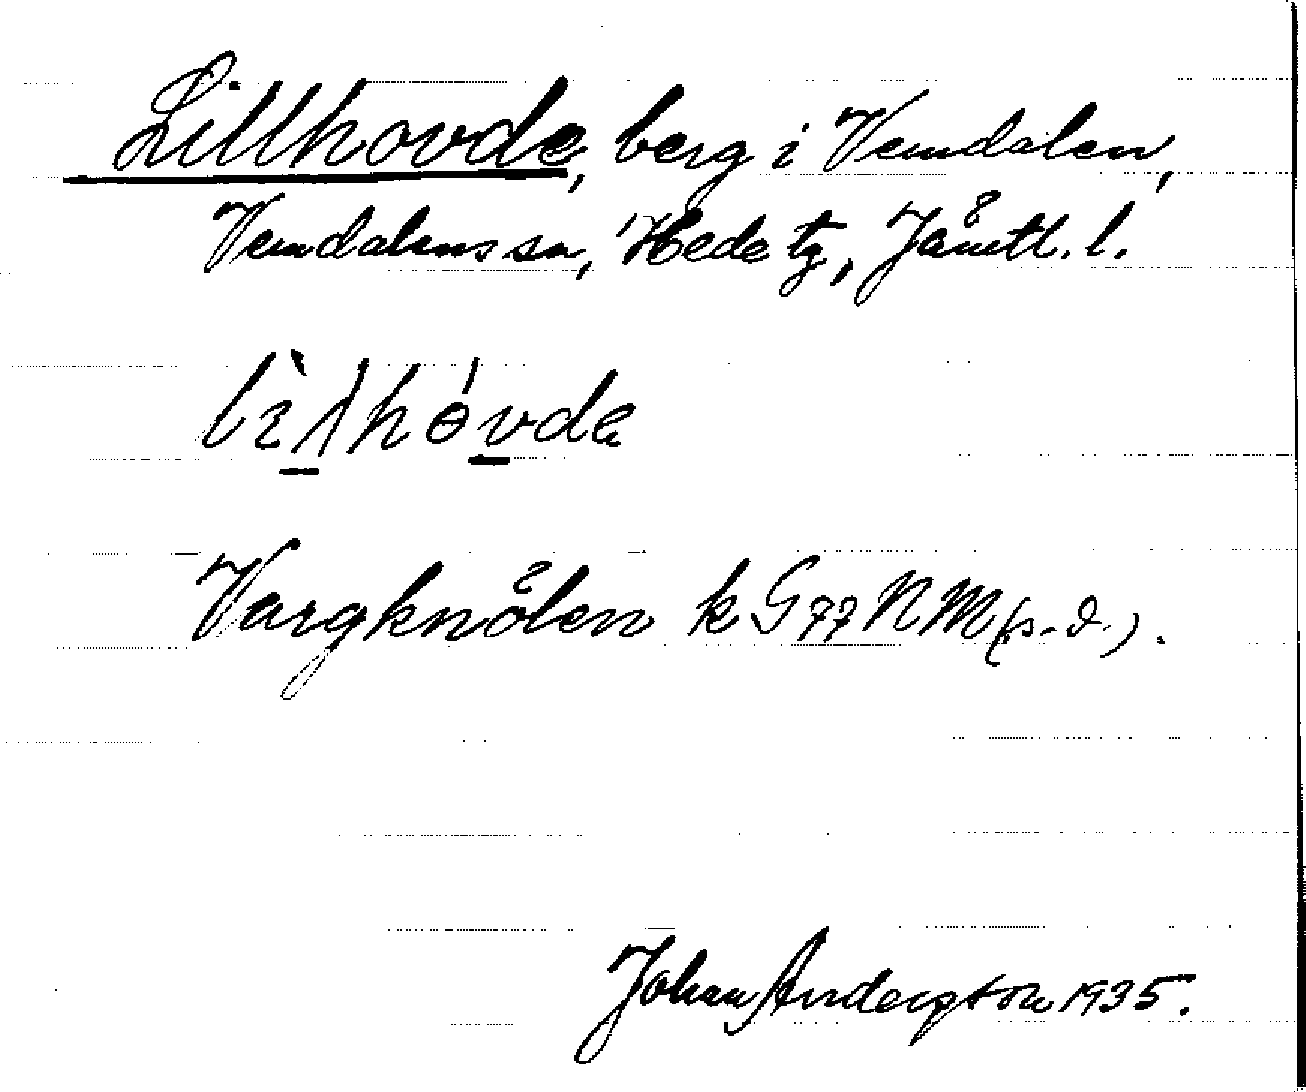 Lillhovde, berg i Vemdalen,
Vemdalens sn, Hede tg, Jämtl. l.
lìλhɵ́vda
Vargknölen k G 77 N M (s. d.).
Johan Anderson 1935.